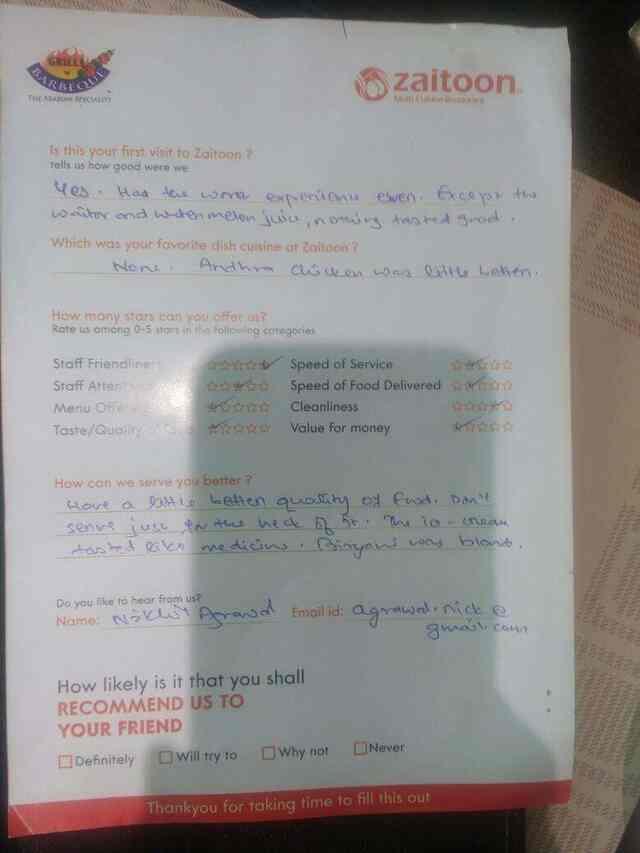 GRILLS
BARBEQUE
THE ARABIAN SPECIALITY
zaitoon
Multi Cuisine Restaurant
Is this your first visit to Zaitoon ?
tells us how good were we
Yes. Has the worst experience ever. Except the
waiter and watermelon juice, nothing tasted good.
Which was your favorite dish cuisine at Zaitoon ?
None. Andhra chicken was little better.
How many stars can you offer us?
Rate us among 0-5 stars in the following categories
Staff Friendliness
Speed of Service
Staff Attentiveness
Speed of Food Delivered
Menu Offering
Cleanliness
Taste/Quality of
Value for money
How can we serve you better ?
Have a little better quality of food. Don't
serve just for the heck of it. The ice-cream
tasted like medicine. Biryani was bland.
Do you like to hear from us?
Name: Nikhil Agrawal Email id: agrawal.nick@
gmail.com
How likely is it that you shall
RECOMMEND US TO
YOUR FRIEND
Definitely Will try to Why not Never
Thankyou for taking time to fill this out